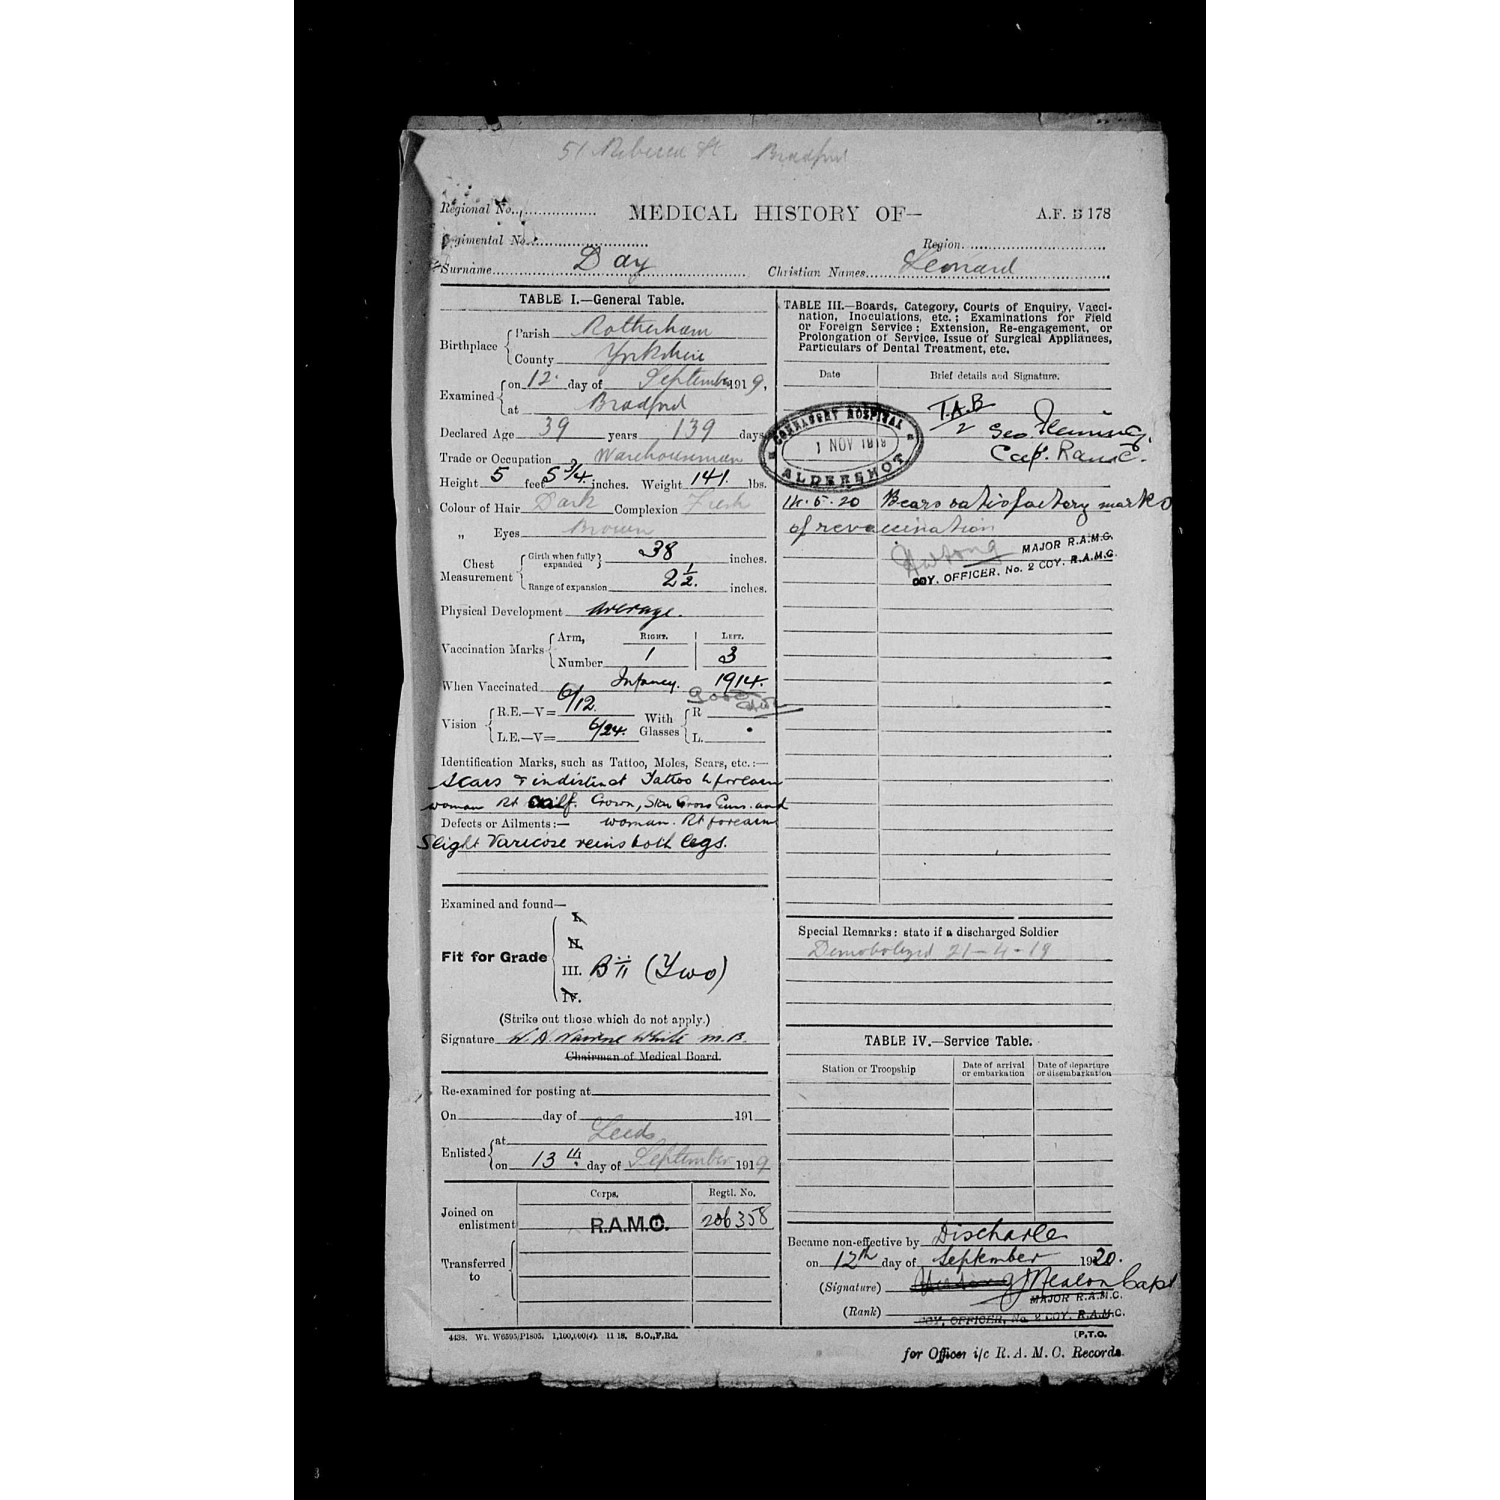 51 Rebecca St Bradford
Regional No.
MEDICAL HISTORY OF—
A.F. B 178
Regimental No.
Region
Surname Day
Christian Names Leonard
TABLE I.—General Table.
Birthplace { Parish Rotherham
County Yorkshire
Examined { on 12 day of September 1919,
at Bradford
Declared Age 39 years 139 days
Trade or Occupation Warehouseman
Height 5 feet 5 3/4 inches. Weight 141 lbs.
Colour of Hair Dark Complexion Fresh
„ Eyes Brown
Chest Measurement { Girth when fully expanded } 38 inches.
Range of expansion 2 1/2 inches.
Physical Development average.
Vaccination Marks { Arm, RIGHT. | LEFT.
Number 1 | 3
When Vaccinated Infancy. 1914.
Vision { R.E.—V= 6/12 With Glasses { R
L.E.—V= 6/24. L.
Identification Marks, such as Tattoo, Moles, Scars, etc.:—
Scars & indistinct Tattoo L forearm
woman Rt calf. Crown, Star Cross Guns. and
Defects or Ailments:— woman. Rt forearm
Slight Varicose veins both legs.
Examined and found—
Fit for Grade { I.
II.
III. B ii (Two)
IV.
(Strike out those which do not apply.)
Signature White M.B.
Chairman of Medical Board.
Re-examined for posting at
On day of 191
Enlisted { at Leeds
on 13th day of September 1919
Corps. Regtl. No.
Joined on enlistment R.A.M.C. 206358
Transferred to {
4438. Wt. W6595/P1805. 1,100,000(d). 11 18. S.O.,F.Rd.
TABLE III.—Boards, Category, Courts of Enquiry, Vacci-
nation, Inoculations, etc.; Examinations for Field
or Foreign Service: Extension, Re-engagement, or
Prolongation of Service, Issue of Surgical Appliances,
Particulars of Dental Treatment, etc.
Date Brief details and Signature.
CONNAUGHT HOSPITAL
1 NOV 1919
ALDERSHOT
T.A.B
2 Geo. Fleming,
Capt. RAMC.
14.5.20 Bears satisfactory marks
of revaccination
MAJOR R.A.M.C.
COY. OFFICER, No. 2 COY. R.A.M.C.
Special Remarks: state if a discharged Soldier
Demobolized 21-4-19
TABLE IV.—Service Table.
Station or Troopship Date of arrival or embarkation Date of departure or disembarkation
Became non-effective by Discharge
on 12th day of September 1920.
(Signature) Capt
MAJOR R.A.M.C.
(Rank)
COY. OFFICER, No. 2 COY. R.A.M.C.
(P.T.O.
for Officer i/c R. A. M. C. Records.